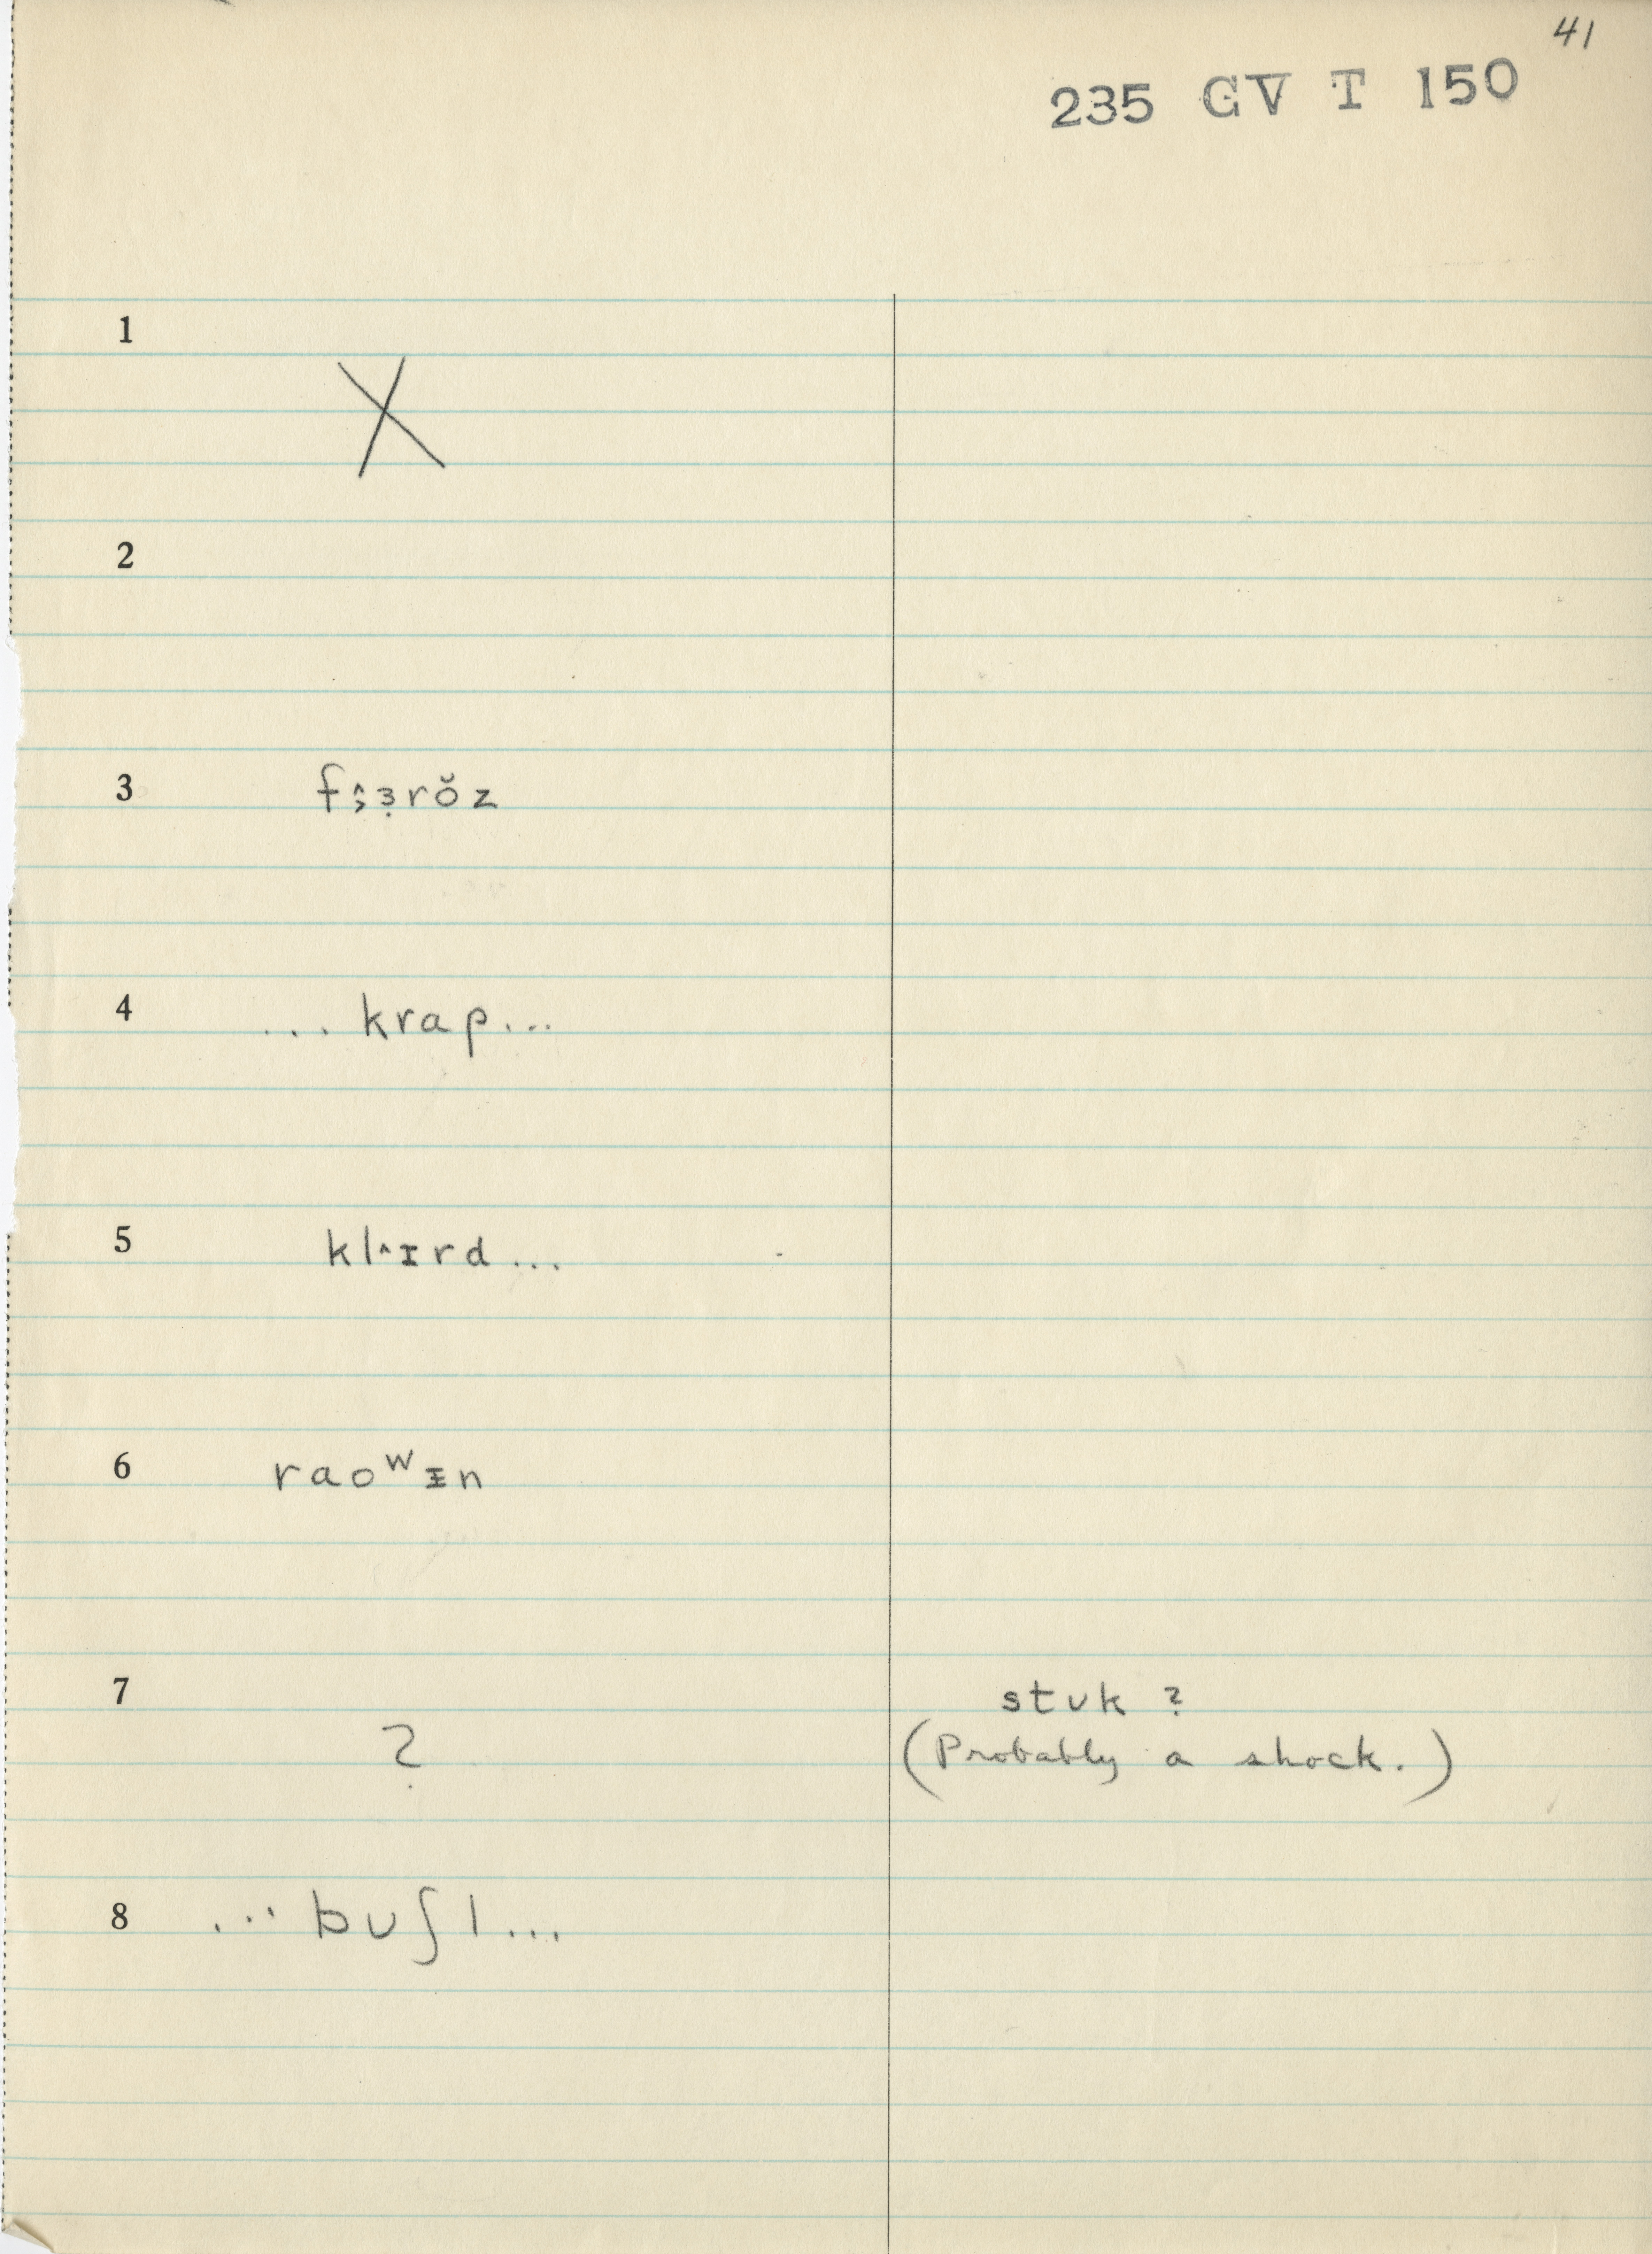 41
235 GV T 150
1
X
2
3 f˄̡ɜ̣rŏz
4 ... krap...
5 kl˄ɪrd...
6 raoʷᵻn
7 stʊk ?
? (Probably a shock.)
8 ... bʊʃl...